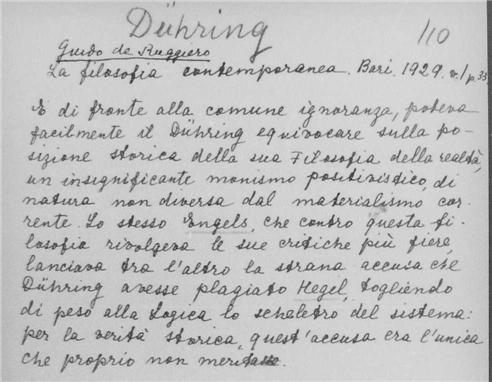 Dühring
110
Guido de Ruggiero
La filosofia contemporanea. Bari. 1929. v. 1 p. 33
E di fronte alla comune ignoranza, poteva
facilmente il Dühring equivocare sulla po-
sizione storica della sua Filosofia della realtà,
un insignificante monismo positivistico, di
natura non diversa dal materialismo cor-
rente. Lo stesso Engels, che contro questa fi-
losofia rivolgeva le sue critiche più fiere,
lanciava tra l'altro la strana accusa che
Dühring avesse plagiato Hegel, togliendo
di peso alla Logica lo scheletro del sistema:
per la verità storica, quest'accusa era l'unica
che proprio non meritasse.